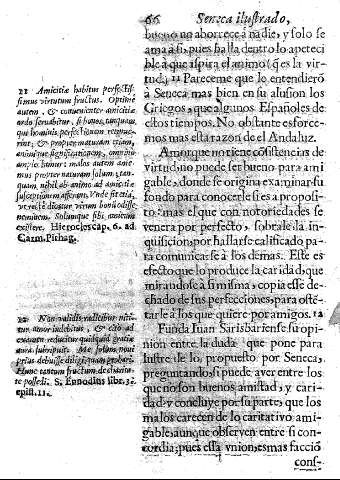 66 Seneca ilustrado,
bueno no aborrece a nadie, y solo se
ama a si, pues halla dentro lo apeteci
ble a que aspira el animo (q̃ es la vir-
tud.) 11 Pareceme que lo entendierõ
à Seneca mas bien en su alusion los
Griegos, que algunos Españoles de
estos tiempos. No obstante esforce-
mos mas esta razon de el Andaluz.
Amor que no tiene cõsistencias de
virtud, no puede ser bueno para ami
gable, donde se origina examinar su
fondo para conocerle si es a proposi-
to: mas el que con notoriedades se
venera por perfecto, sobrale la in-
quisicion, por hallarse calificado pa-
ra comunicarse à los demas. Este es
efecto que lo produce la caridad, que
mirandose à si misma, copia esse de-
chado de sus perfecciones, para oste-
tarle à los que quiere por amigos. 12
Funda Iuan Sarisbariense su opi-
nion entre la duda que pone para
lustre de lo propuesto por Seneca,
preguntando si puede aver entre los
que no son buenos amistad, y cari-
dad y concluye por su parte, que los
malos carecen de lo caritativo ami-
gable, aunque observen entre si con-
cordia; pues essa vnion, es mas facciõ
cons-
11 Amicitia habitus perfectis-
simus virtutum fructus. Optime
autem, & convenienter amicitia
ordo servabitur, si bonos, tanquam
qui hominis perfectionem retinue-
rint, & propter naturam etiam,
animique significationem, omnibus
amplectimur: malos autem ami-
mus propter naturam solum; tan-
quam nihil ab animo ad amicitia
susceptionem afferant. Vnde fit etiã,
ve recte dicatur virum bonũ odisse
neminem. Solumque sibi amicum
existere. Hierocles cap. 6. ad
Carm. Pithag.
12 Non validis radicibus niti-
tur amor indebitus, & cito ad
exactum reducitur quidquid gratiæ
aura subripuit.
Hunc tantum fructum desiderã-
te possedi. S. Ennodius libr. 32.
epist. 11.